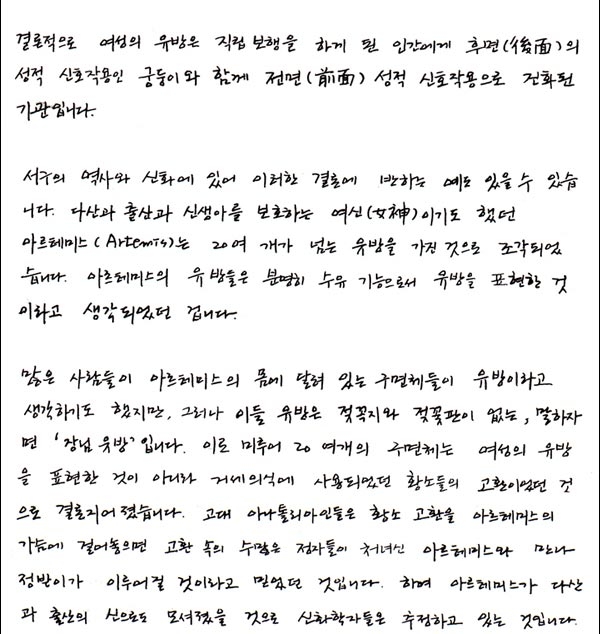 결론적으로 여성의 유방은 직립보행을 하게 된 인간에게 후면(後面)의
성적 신호작용인 궁둥이와 함께 전면(前面) 성적 신호작용으로 진화된
기관입니다.
서구의 역사와 신화에 있어 이러한 결론에 반하는 예도 있을 수 있습
니다. 다산과 출산과 신생아를 보호하는 여신(女神)이기도 했던
아르테미스(Artemis)는 20여 개가 넘는 유방을 가진 것으로 조각되었
습니다. 아르테미스의 유방들은 분명히 수유 기능으로서 유방을 표현한 것
이라고 생각되었던 겁니다.
많은 사람들이 아르테미스의 몸에 달려 있는 구면체들이 유방이라고
생각하기도 했지만, 그러나 이들 유방은 젖꼭지와 젖꽃판이 없는, 말하자
면 '장님 유방'입니다. 이로 미루어 20여개의 구면체는 여성의 유방
을 표현한 것이 아니라 거세의식에 사용되었던 황소들의 고환이었던 것
으로 결론지어졌습니다. 고대 아나톨리아인들은 황소 고환을 아르테미스의
가슴에 걸어놓으면 고환 속의 수많은 정자들이 처녀신 아르테미스와 만나
정받이가 이루어질 것이라고 믿었던 것입니다. 하여 아르테미스가 다산
과 출산의 신으로도 모셔졌을 것으로 신화학자들은 추정하고 있는 것입니다.